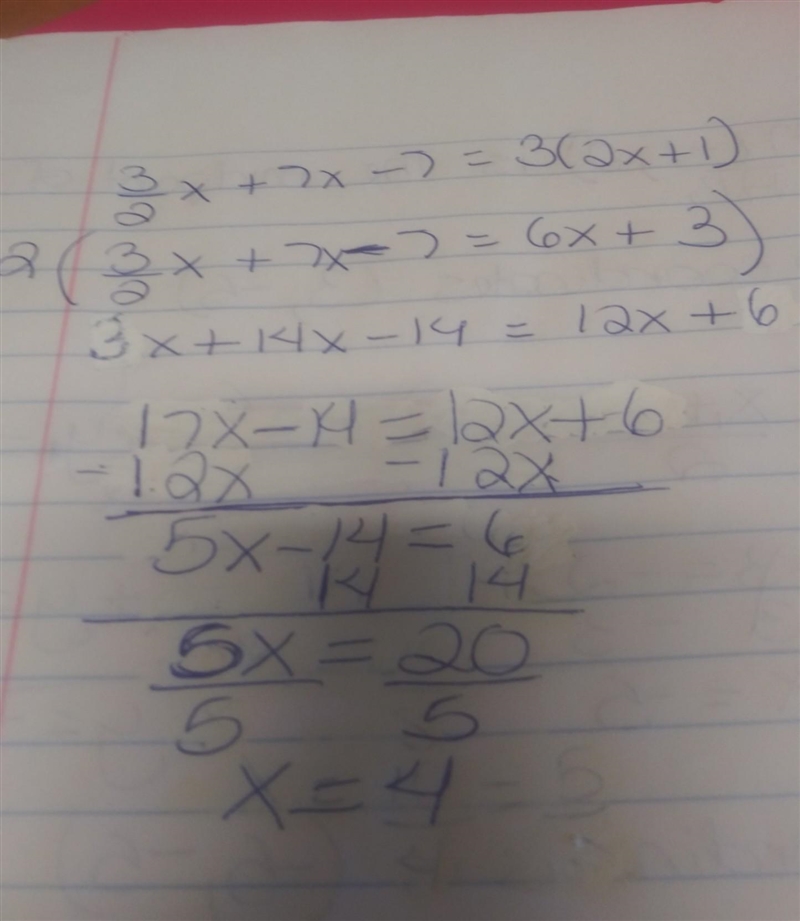 3/2 x + 7x - 7 = 3(2x+1)
2( 3/2 x + 7x - 7 = 6x + 3 )
3x + 14x - 14 = 12x + 6
17x - 14 = 12x + 6
-12x -12x
5x - 14 = 6
14 14
5x/5 = 20/5
x = 4